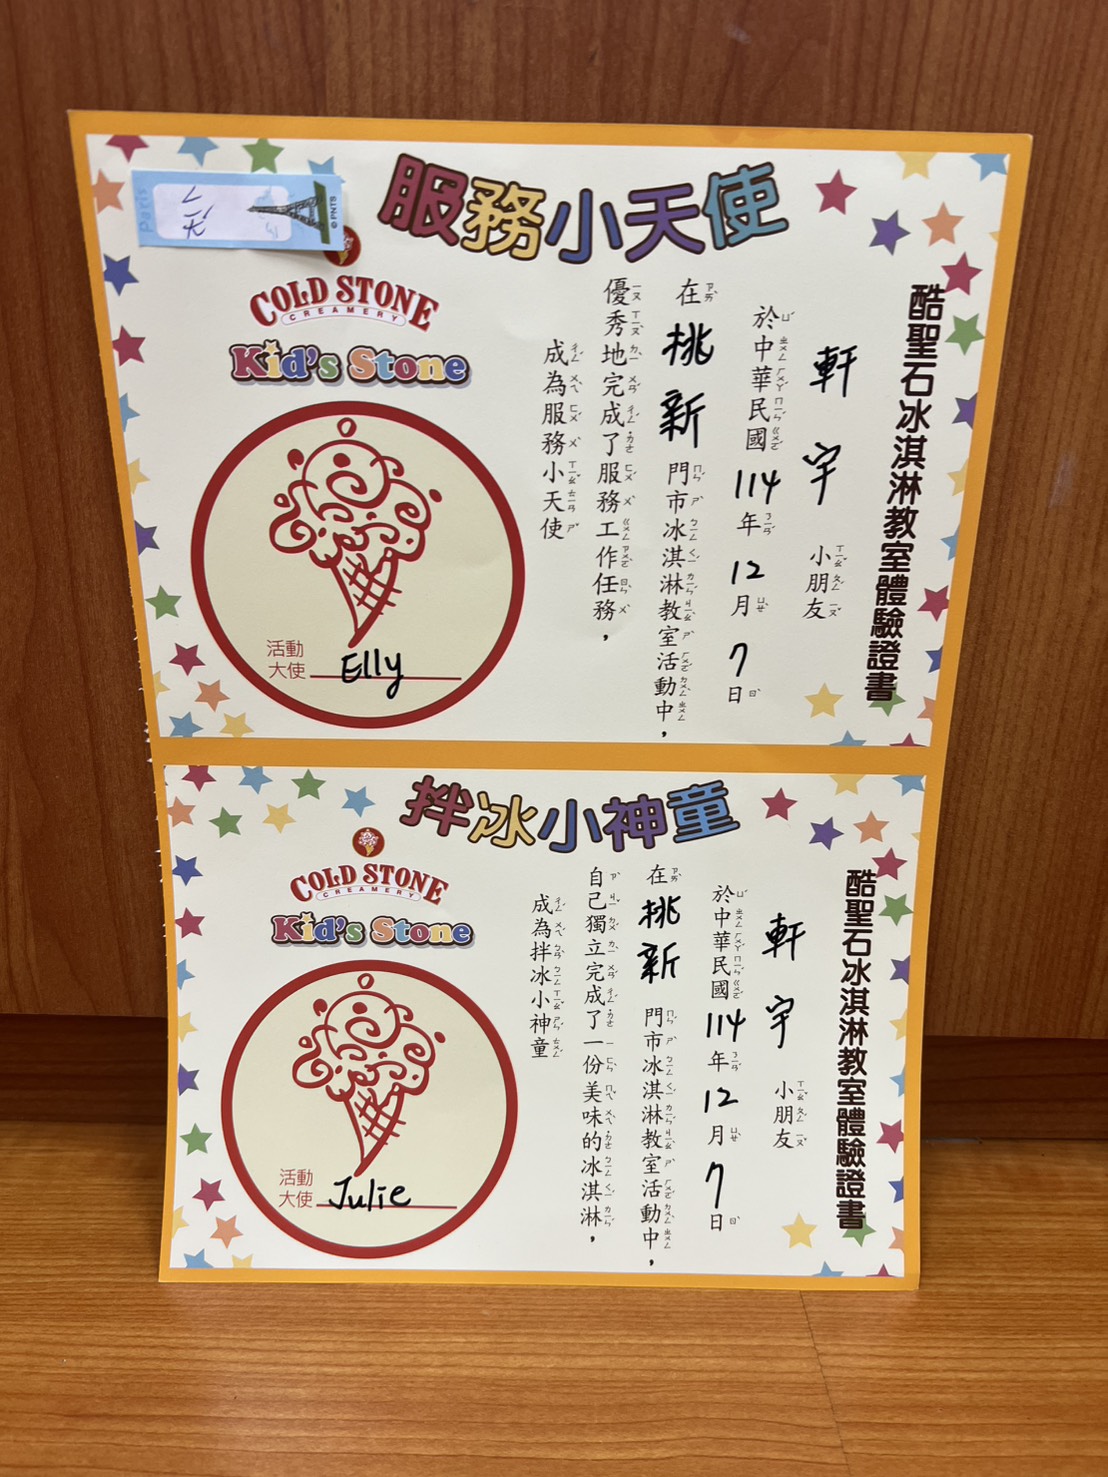 服務小天使
COLD STONE
CREAMERY
Kid's Stone
酷聖石冰淇淋教室體驗證書
軒宇 小朋友
於中華民國 114 年 12 月 7 日
在 桃新 門市冰淇淋教室活動中，
優秀地完成了服務工作任務，
成為服務小天使
活動
大使 Elly
Paris
©PNTS
拌冰小神童
COLD STONE
CREAMERY
Kid's Stone
酷聖石冰淇淋教室體驗證書
軒宇 小朋友
於中華民國 114 年 12 月 7 日
在 桃新 門市冰淇淋教室活動中，
自己獨立完成了一份美味的冰淇淋，
成為拌冰小神童
活動
大使 Julie